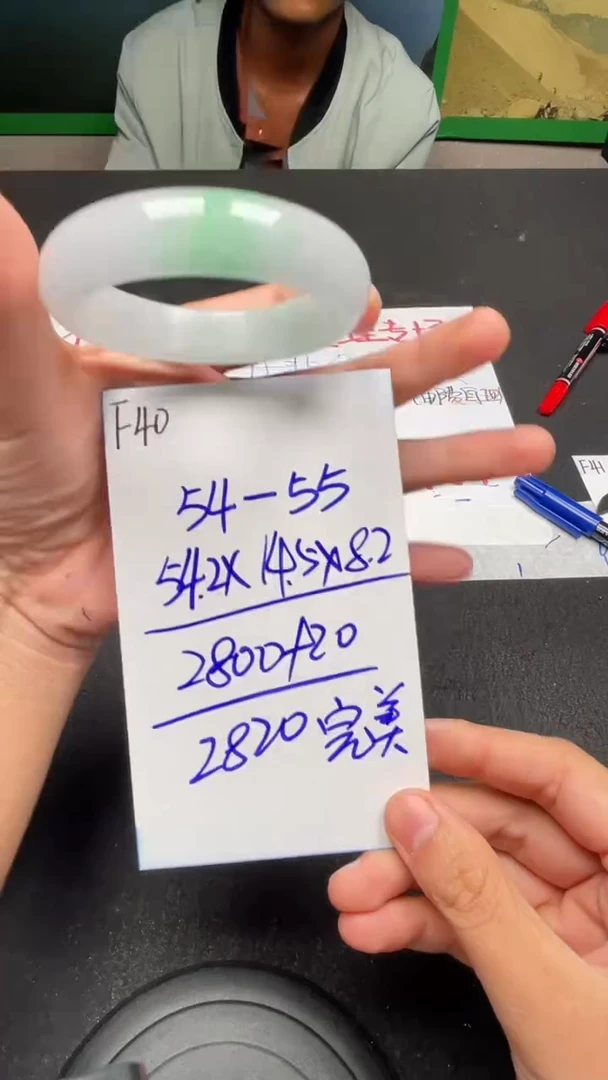 F40
54-55
54.2X 14.5X8.2
2800+20
2820完美
F41